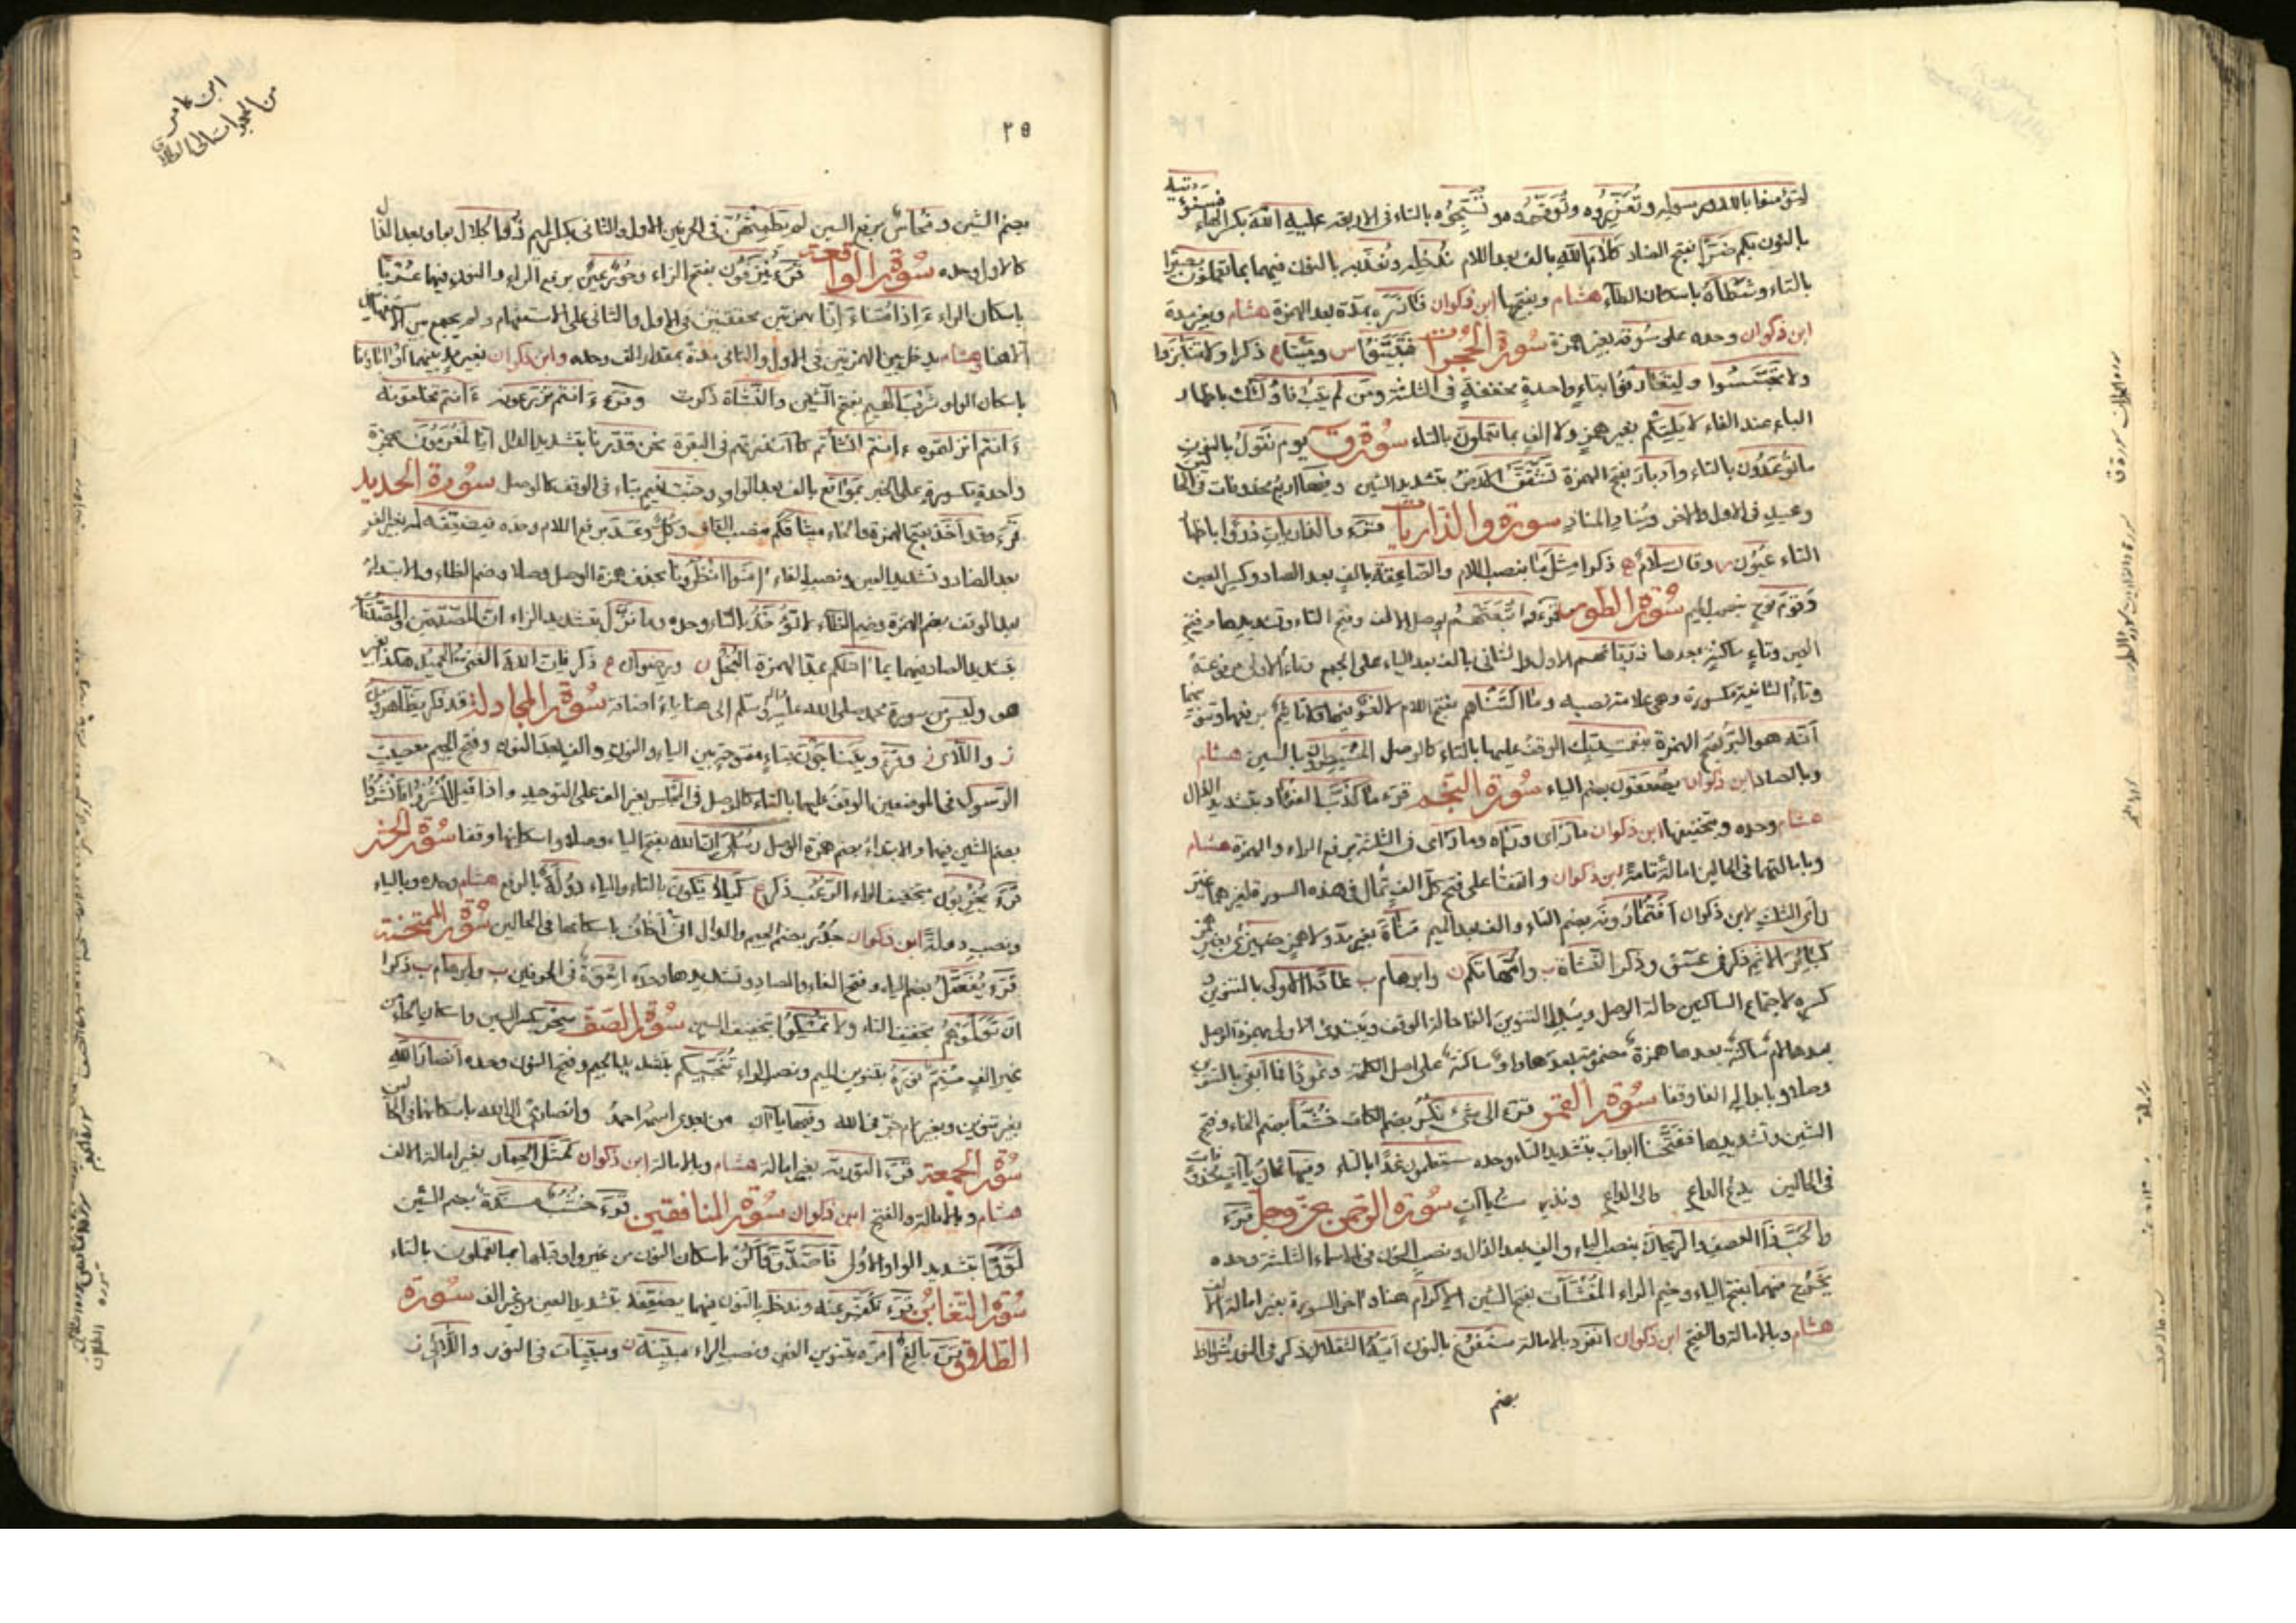 لتؤمنوا بالله ورسوله وتعزروه وتوقروه وتسبحوه بالتاء في الاربعة عليه الله بكسر الهاء فسنؤتيه
بالنون بكم ضرا بفتح الضاد كلام الله بالف بعد اللام ندخله ونعذبه بالنون فيهما بما تعملون بصيرا
بالتاء وشطأه باسكان الطاء هشام وبفتحها ابن ذكوان فآزره بمدة بعد الهمزة هشام وبغير مدة
ابن ذكوان وحده على سوقه بغير همزة سورة الحجرات فتبينوا س وميتا ع ذكرا ولا تنابزوا
ولا تجسسوا ولتعارفوا بتاء واحدة مخففة في الثلثة ومن لم يتب فاولئك باظهار
الباء عند الفاء لا يلتكم بغير همز ولا الف بما تعملون بالتاء سورة ق يوم نقول بالنون
ما توعدون بالتاء وادبار بفتح الهمزة تشقق الارض بتشديد الشين وفيها اربع محذوفات في الحا لين
وعيد في الاول والاخر ويناد المناد سورة والذاريات قرء والذاريات ذروا باظهار
التاء عيون م وقال سلام ه ذكرا مثل ما بنصب اللام والصاعقة بالف بعد الصاد وكسر العين
وقوم نوح بنصب الميم سورة الطور قرء واتبعتهم بوصل الالف وفتح التاء وتشديدها وفتح
العين وتاء ساكنة بعدها ذرياتهم الاول والثاني بالف بعد الياء على الجمع وتاء الاول مرفوعة
وتاء الثانية مكسورة وهي علامة نصبه وما التناهم بفتح اللام لا لغو فيها ولا تاثيم برفعهما وتنوينهما
انه هو البر بكسر الهمزة بنعمت ربك الوقف عليها بالتاء كالوصل المسيطرون بالسين هشام
وبالصاد ابن ذكوان يصعقون بضم الياء سورة النجم قرء ما كذب الفؤاد بتشديد الذال
هشام وحده وبتخفيفها ابن ذكوان ما راى ورآه وما راى في الثلثة برفع الراء والهمزة هشام
وبامالتهما في الحالين امالة تامة ابن ذكوان واتفقا على فتح كل الف تمال في هذه السورة لغيرهما غير
راى الثلث لابن ذكوان افتمارونه بضم التاء والف بعد الميم مناة بغير مد ولا همز ضيزى بغير همز
كبائر الاثم ذكر في عسق وذكرا النشاة ب وامهاتكم ن وابرهام ب عادا الاولى بالتنوين و
كسره لاجتماع الساكنين حالة الوصل ويبدل التنوين الفا حالة الوقف ويبتدئ الاولى بهمزة الوصل
بعدها لام ساكنة بعدها همزة مضمومة بعدها واو ساكنة على اصل الكلمة وثمودا فما ابقى بالتنوين
وصلا وبابداله الفا وقفا سورة القمر قرء الى شئ نكر بضم الكاف خشعا بضم الخاء وفتح
الشين وتشديدها ففتحنا ابواب بتشديد التاء وحده ستعلمون غدا بالتاء وفيها ثمان يآات محذوفات
في الحالين يدع الداع والى الداع ونذر ست ياآت سورة الرحمن عز وجل قرء
والحب ذا العصف والريحان بنصب الباء والف بعد الذال ونصب النون في الاسماء الثلثة وحده
يخرج منهما بفتح الياء وضم الراء المنشآت بفتح الشين الاكرام هنا واخر السورة بغير امالة الالف
هشام وبالامالة والفتح ابن ذكوان انفرد بالامالة سنفرغ بالنون ايه الثقلان ذكر في النور شواظ
بضم
ابن عامر
من الحجرات الى الطلاق
٢٥
بضم الشين ونحاس برفع السين لم يطمثهن في الحرفين الاول والثاني بكسر الميم ذو الجلال بواو بعد الذال
كالاول وحده سورة الواقعة قرء ينزفون بفتح الزاء وحور عين برفع الراء والنون فيهما عربا
باسكان الراء ءاذا متنا ءانا بهمزتين محققتين في الاول والثاني على الاستفهام ولم يجمع بين الاستفهامين
الا هنا هشام يدخل بين الهمزتين في الاول والثاني مدة بمقدار الف وحده وابن ذكوان بغير مد بينهما او اباؤنا
باسكان الواو شرب الهيم بفتح الشين والنشاة ذكرت وقرء ءانتم تزرعونه ءانتم تخلقونه
ءانتم انزلتموه ءانتم انشاتم كاانذرتهم في البقرة نحن قدرنا بتشديد الدال انا لمغرمون بهمزة
واحدة مكسورة على الخبر بمواقع بالف بعد الواو وجنت نعيم بتاء في الوقف كالوصل سورة الحديد
قرء وقد اخذ بفتح الهمزة والخاء ميثاقكم بنصب القاف وكل وعد برفع اللام وحده فيضعفه له بغير الف
بعد الضاد وتشديد العين ونصب الفاء امنوا انظرونا بحذف همزة الوصل وصلا وضم الظاء والابتداء
بعد الوقف بضم الهمزة وضم الظاء لا تؤخذ بالتاء وحده وما نزل بتشديد الزاء ان المصدقين والمصدقات
بتشديد الصاد فيهما بما آتاكم بمد الهمزة البخل ن ورضوان ع ذكر فان الله الغني الحميد هكذا بغير
هو وليس من سورة محمد صلى الله عليه وآله وسلم الى هنا ياء اضافة سورة المجادلة قد ذكر يظاهرون
ز واللائى ن وقرء ويتناجون بتاء مفتوحة بين الياء والنون والف بعد النون وفتح الجيم معصيت
الرسول في الموضعين الوقف عليها بالتاء كالوصل في المجلس بغير الف على التوحيد واذا قيل انشزوا فانشزوا
بضم الشين فيهما والابتداء بضم همزة الوصل رسلي ان الله بفتح الياء وصلا واسكانها وقفا سورة الحشر
قرء يخربون بتخفيف الراء الرعب ذكر ع كيلا يكون بالتاء والياء دولة بالرفع هشام وحده وبالياء
ونصب دولة ابن ذكوان جدر بضم الجيم والدال اني اخاف باسكانها في الحالين سورة الممتحنة
قرء يفصل بضم الياء وفتح الفاء والصاد وتشديدها وحده اسوة في الحرفين ب وابرهام ب ذكرا
ان تولوهم بتخفيف التاء ولا تمسكوا بتخفيف السين سورة الصف سحر بكسر السين واسكان الحاء من
غير الف متم نوره بتنوين الميم ونصب الراء تنجيكم بتشديد الجيم وفتح النون وحده انصار الله
بغير تنوين وبغير لام جر في الله وفيها يآان من بعدي اسمه احمد وانصاري الى الله باسكانهما في الحالين
سورة الجمعة قرء التورية بغير امالة هشام وبالامالة ابن ذكوان كمثل الحمار بغير امالة الالف
هشام وبالامالة والفتح ابن ذكوان سورة المنافقين قرء خشب مسندة بضم الشين
لووا بتشديد الواو الاول فاصدق واكن باسكان النون من غير واو قبلها بما تعملون بالتاء
سورة التغابن قرء نكفر عنه وندخله بالنون فيهما يضعفه بتشديد العين من غير الف سورة
الطلاق قرء بالغ امره بتنوين الغين ونصب الراء مبينة ن ومبينات في النور واللائى ز